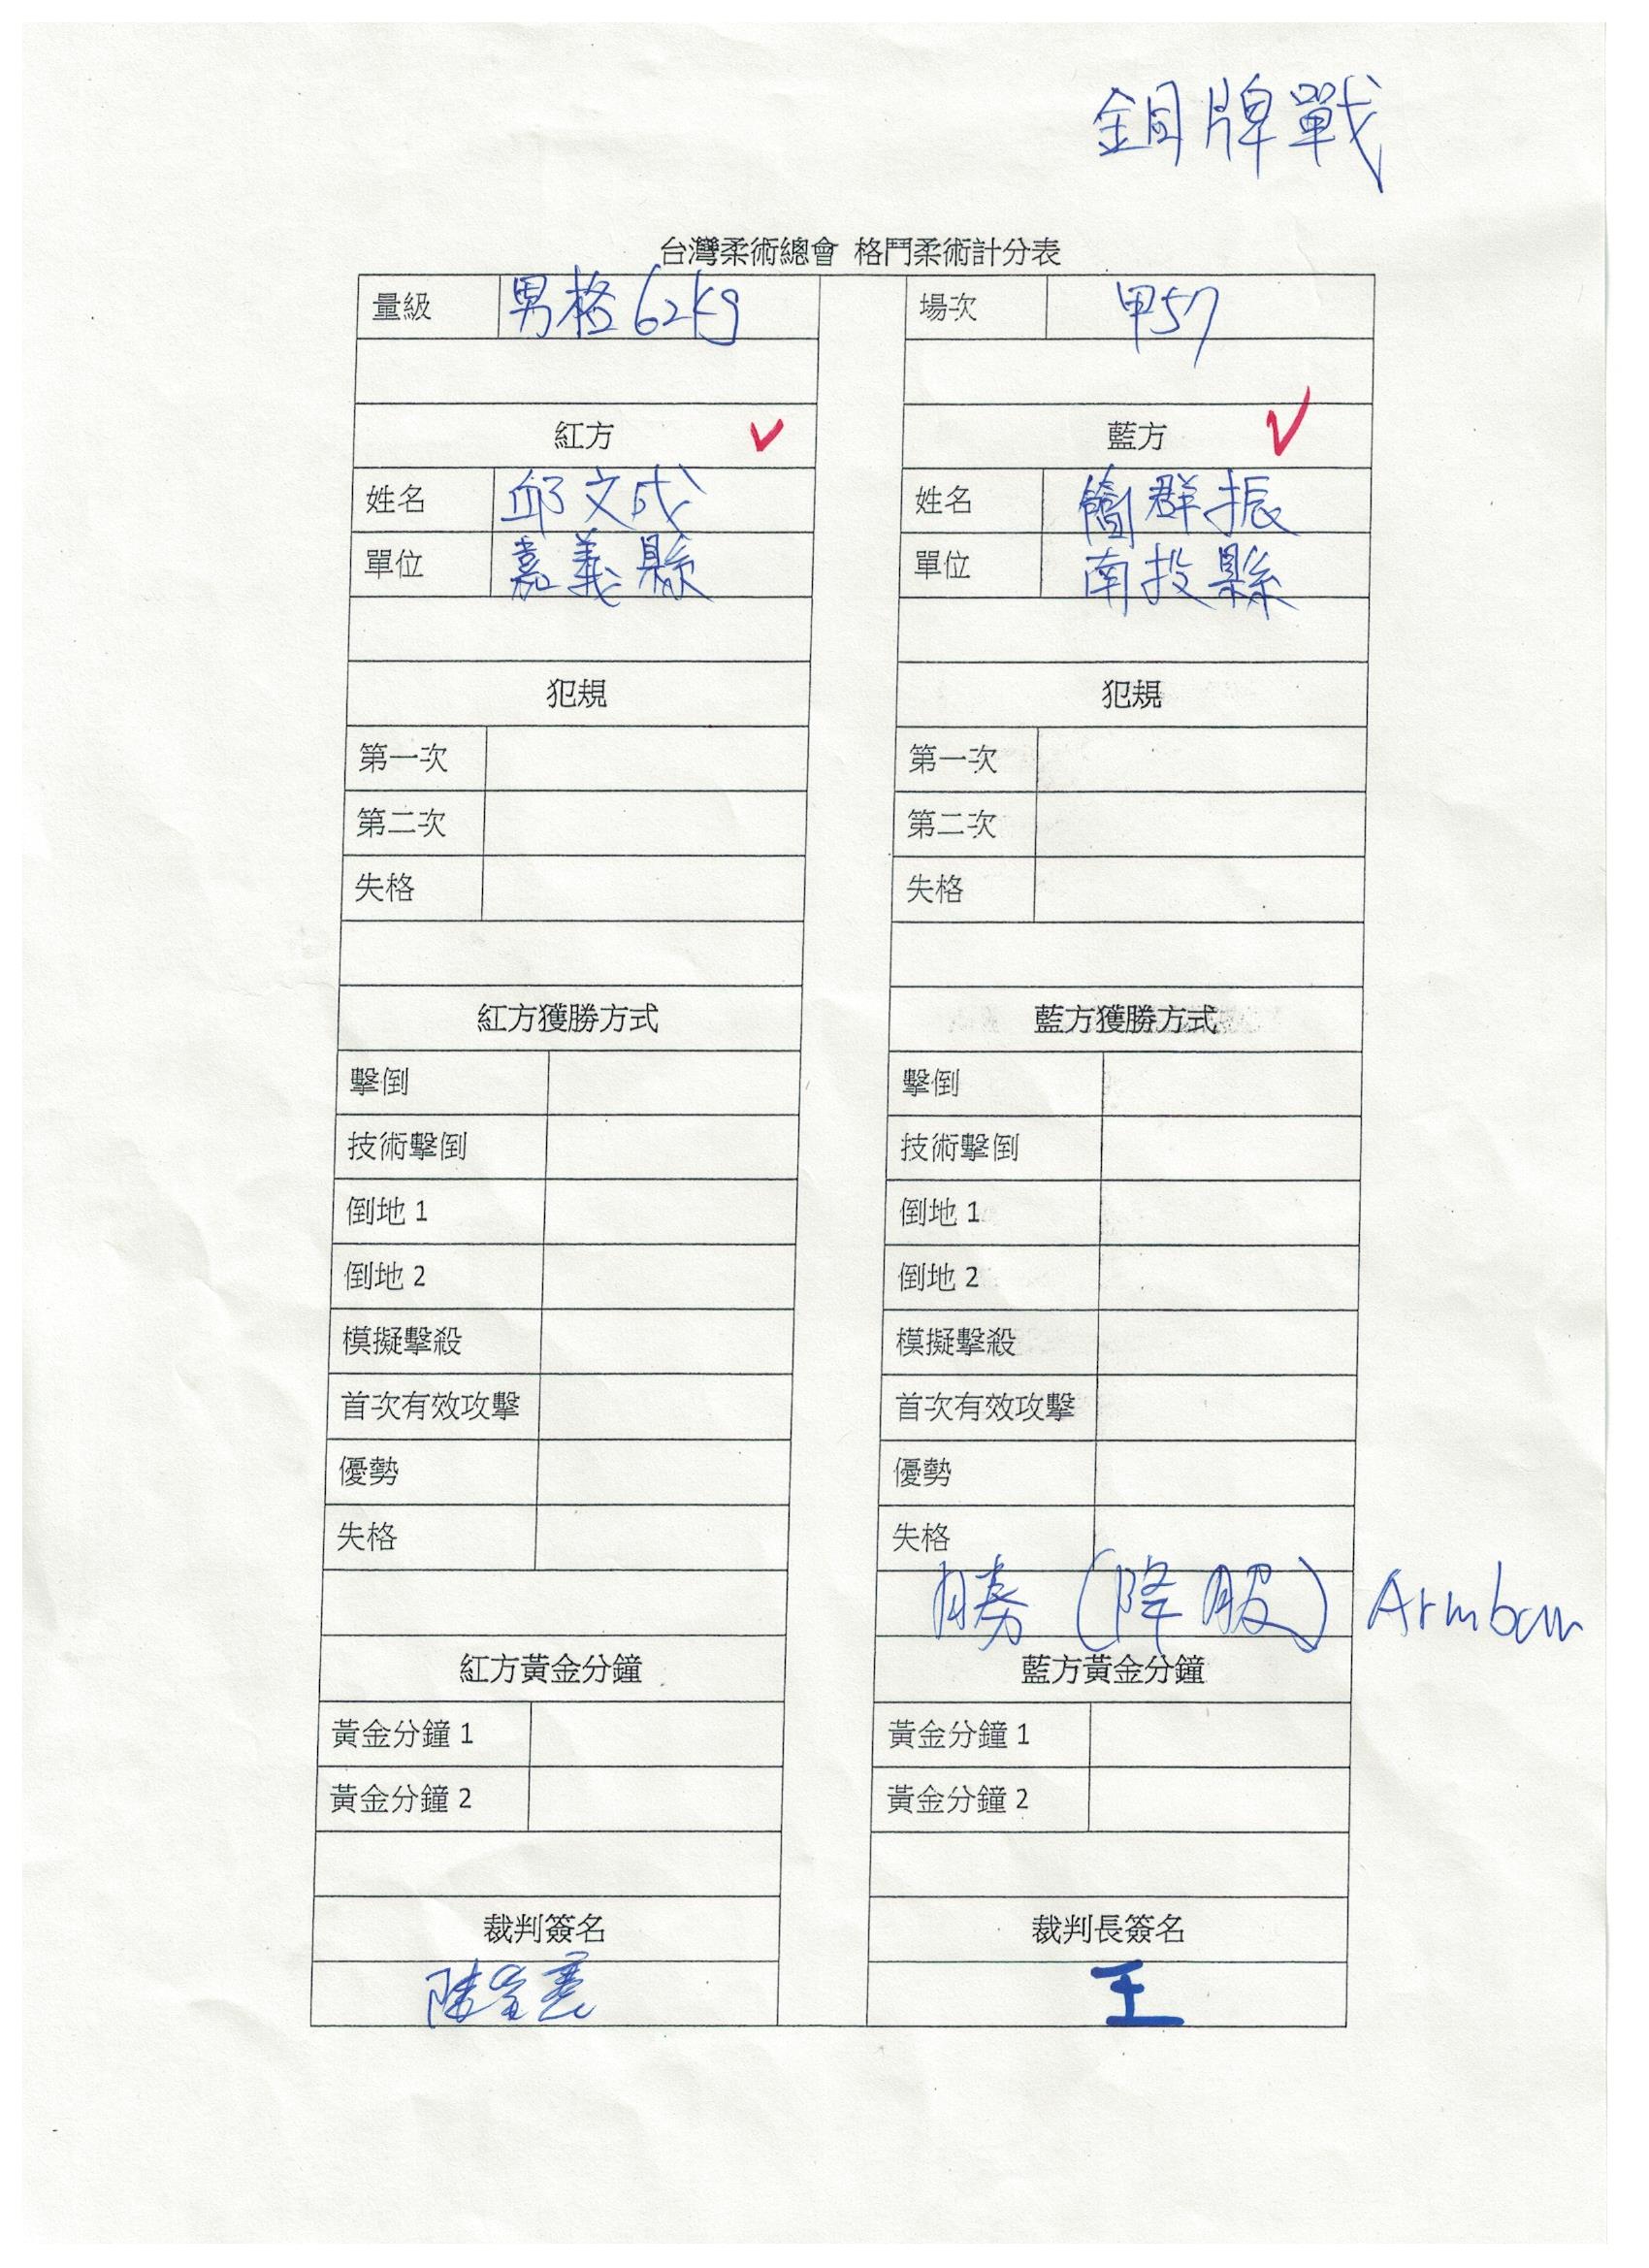 銅牌戰
台灣柔術總會 格鬥柔術計分表
量級 男格62kg 場次 甲57
紅方 ✓ 藍方 ✓
姓名 邱文成 姓名 簡群振
單位 嘉義縣 單位 南投縣
犯規 犯規
第一次 第一次
第二次 第二次
失格 失格
紅方獲勝方式 藍方獲勝方式
擊倒 擊倒
技術擊倒 技術擊倒
倒地 1 倒地 1
倒地 2 倒地 2
模擬擊殺 模擬擊殺
首次有效攻擊 首次有效攻擊
優勢 優勢
失格 失格
勝(降服) Armbar
紅方黃金分鐘 藍方黃金分鐘
黃金分鐘 1 黃金分鐘 1
黃金分鐘 2 黃金分鐘 2
裁判簽名 裁判長簽名
王